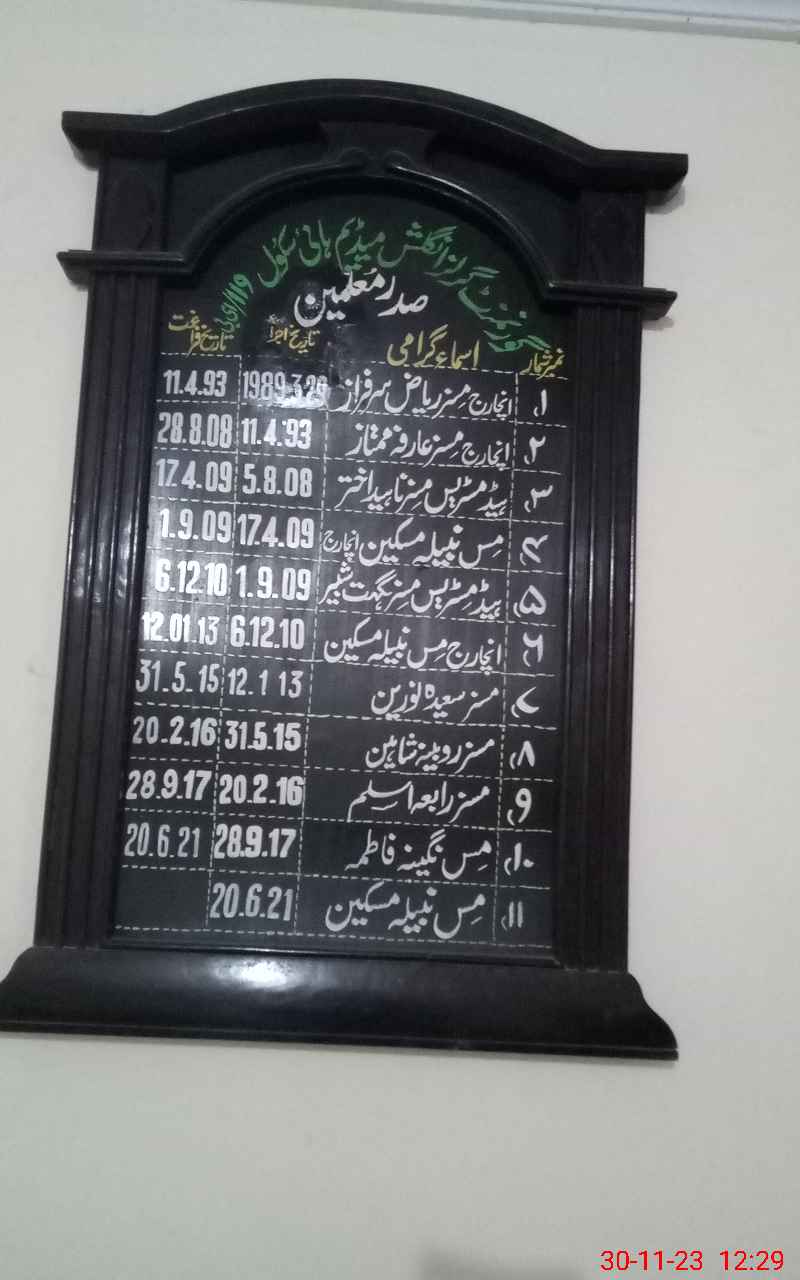 گورنمنٹ گرلز انگلش میڈیم ہائی سکول 119/ای بی
صدر معلمین
نمبر شمار اسماء گرامی تاریخ اجرا تاریخ فراغت
۱ انچارج مسز ریاض سرفراز 1989.3.29 11.4.93
۲ انچارج مسز عارفہ ممتاز 11.4.93 28.8.08
۳ ہیڈ مسٹریس مسز ناہید اختر 5.8.08 17.4.09
۴ مس نبیلہ مسکین انچارج 17.4.09 1.9.09
۵ ہیڈ مسٹریس مسز نگہت شبیر 1.9.09 6.12.10
۶ انچارج مس نبیلہ مسکین 6.12.10 12.01.13
۷ مسز سعیدہ نورین 12.1 13 31.5.15
۸ مسز روبینہ شاہین 31.5.15 20.2.16
۹ مسز رابعہ اسلم 20.2.16 28.9.17
۱۰ مس نگینہ فاطمہ 28.9.17 20.6.21
۱۱ مس نبیلہ مسکین 20.6.21
30-11-23 12:29